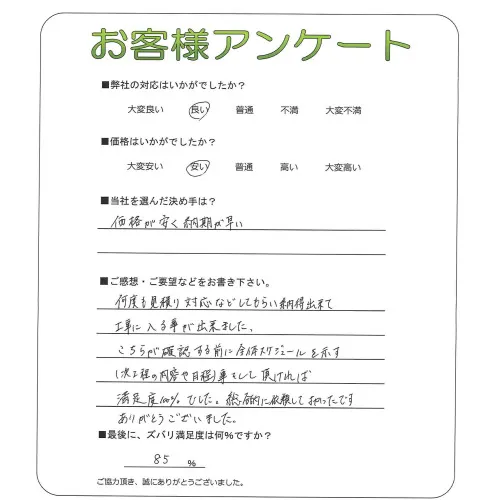 お客様アンケート
■弊社の対応はいかがでしたか?
大変良い 良い 普通 不満 大変不満
■価格はいかがでしたか?
大変安い 安い 普通 高い 大変高い
■当社を選んだ決め手は?
価格が安く納期が早い
■ご感想・ご要望などをお書き下さい。
何度も見積り対応などしてもらい納得出来て
工事に入る事が出来ました。
こちらが確認する前に全体スケジュールを示す
(次工程の内容や日程)事をして頂ければ
満足度100%でした。総合的に依頼して良かったです
ありがとうございました。
■最後に、ズバリ満足度は何%ですか?
85 %
ご協力頂き、誠にありがとうございました。